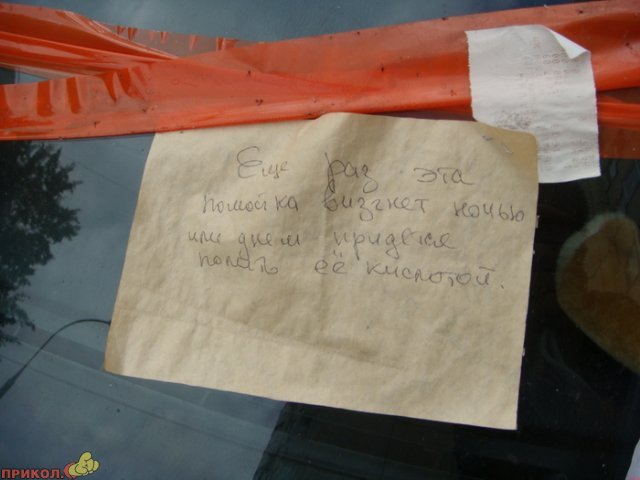 Еще раз эта
помойка визгнет ночью
или днем придется
полать её кислотой.
ПРИКОЛ.